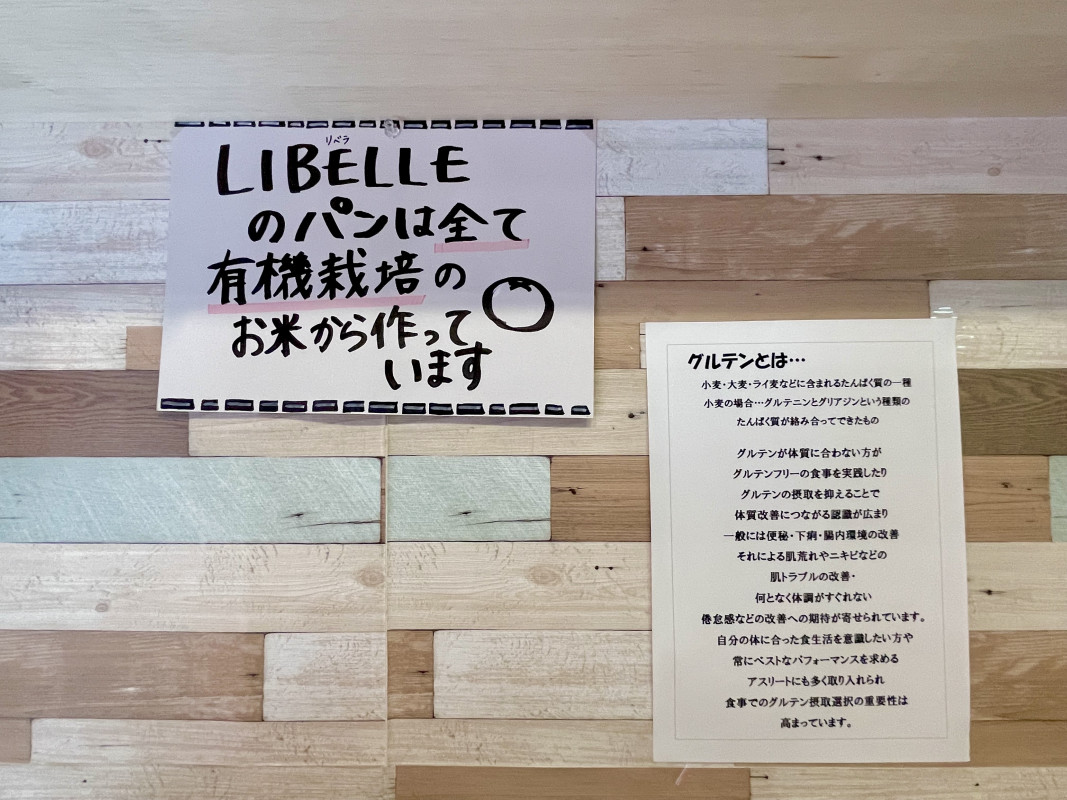 リベラ
LIBELLE
のパンは全て
有機栽培の
お米から作って
います
グルテンとは…
小麦・大麦・ライ麦などに含まれるたんぱく質の一種
小麦の場合…グルテニンとグリアジンという種類の
たんぱく質が絡み合ってできたもの
グルテンが体質に合わない方が
グルテンフリーの食事を実践したり
グルテンの摂取を抑えることで
体質改善につながる認識が広まり
一般には便秘・下痢・腸内環境の改善
それによる肌荒れやニキビなどの
肌トラブルの改善・
何となく体調がすぐれない
倦怠感などの改善への期待が寄せられています。
自分の体に合った食生活を意識したい方や
常にベストなパフォーマンスを求める
アスリートにも多く取り入れられ
食事でのグルテン摂取選択の重要性は
高まっています。